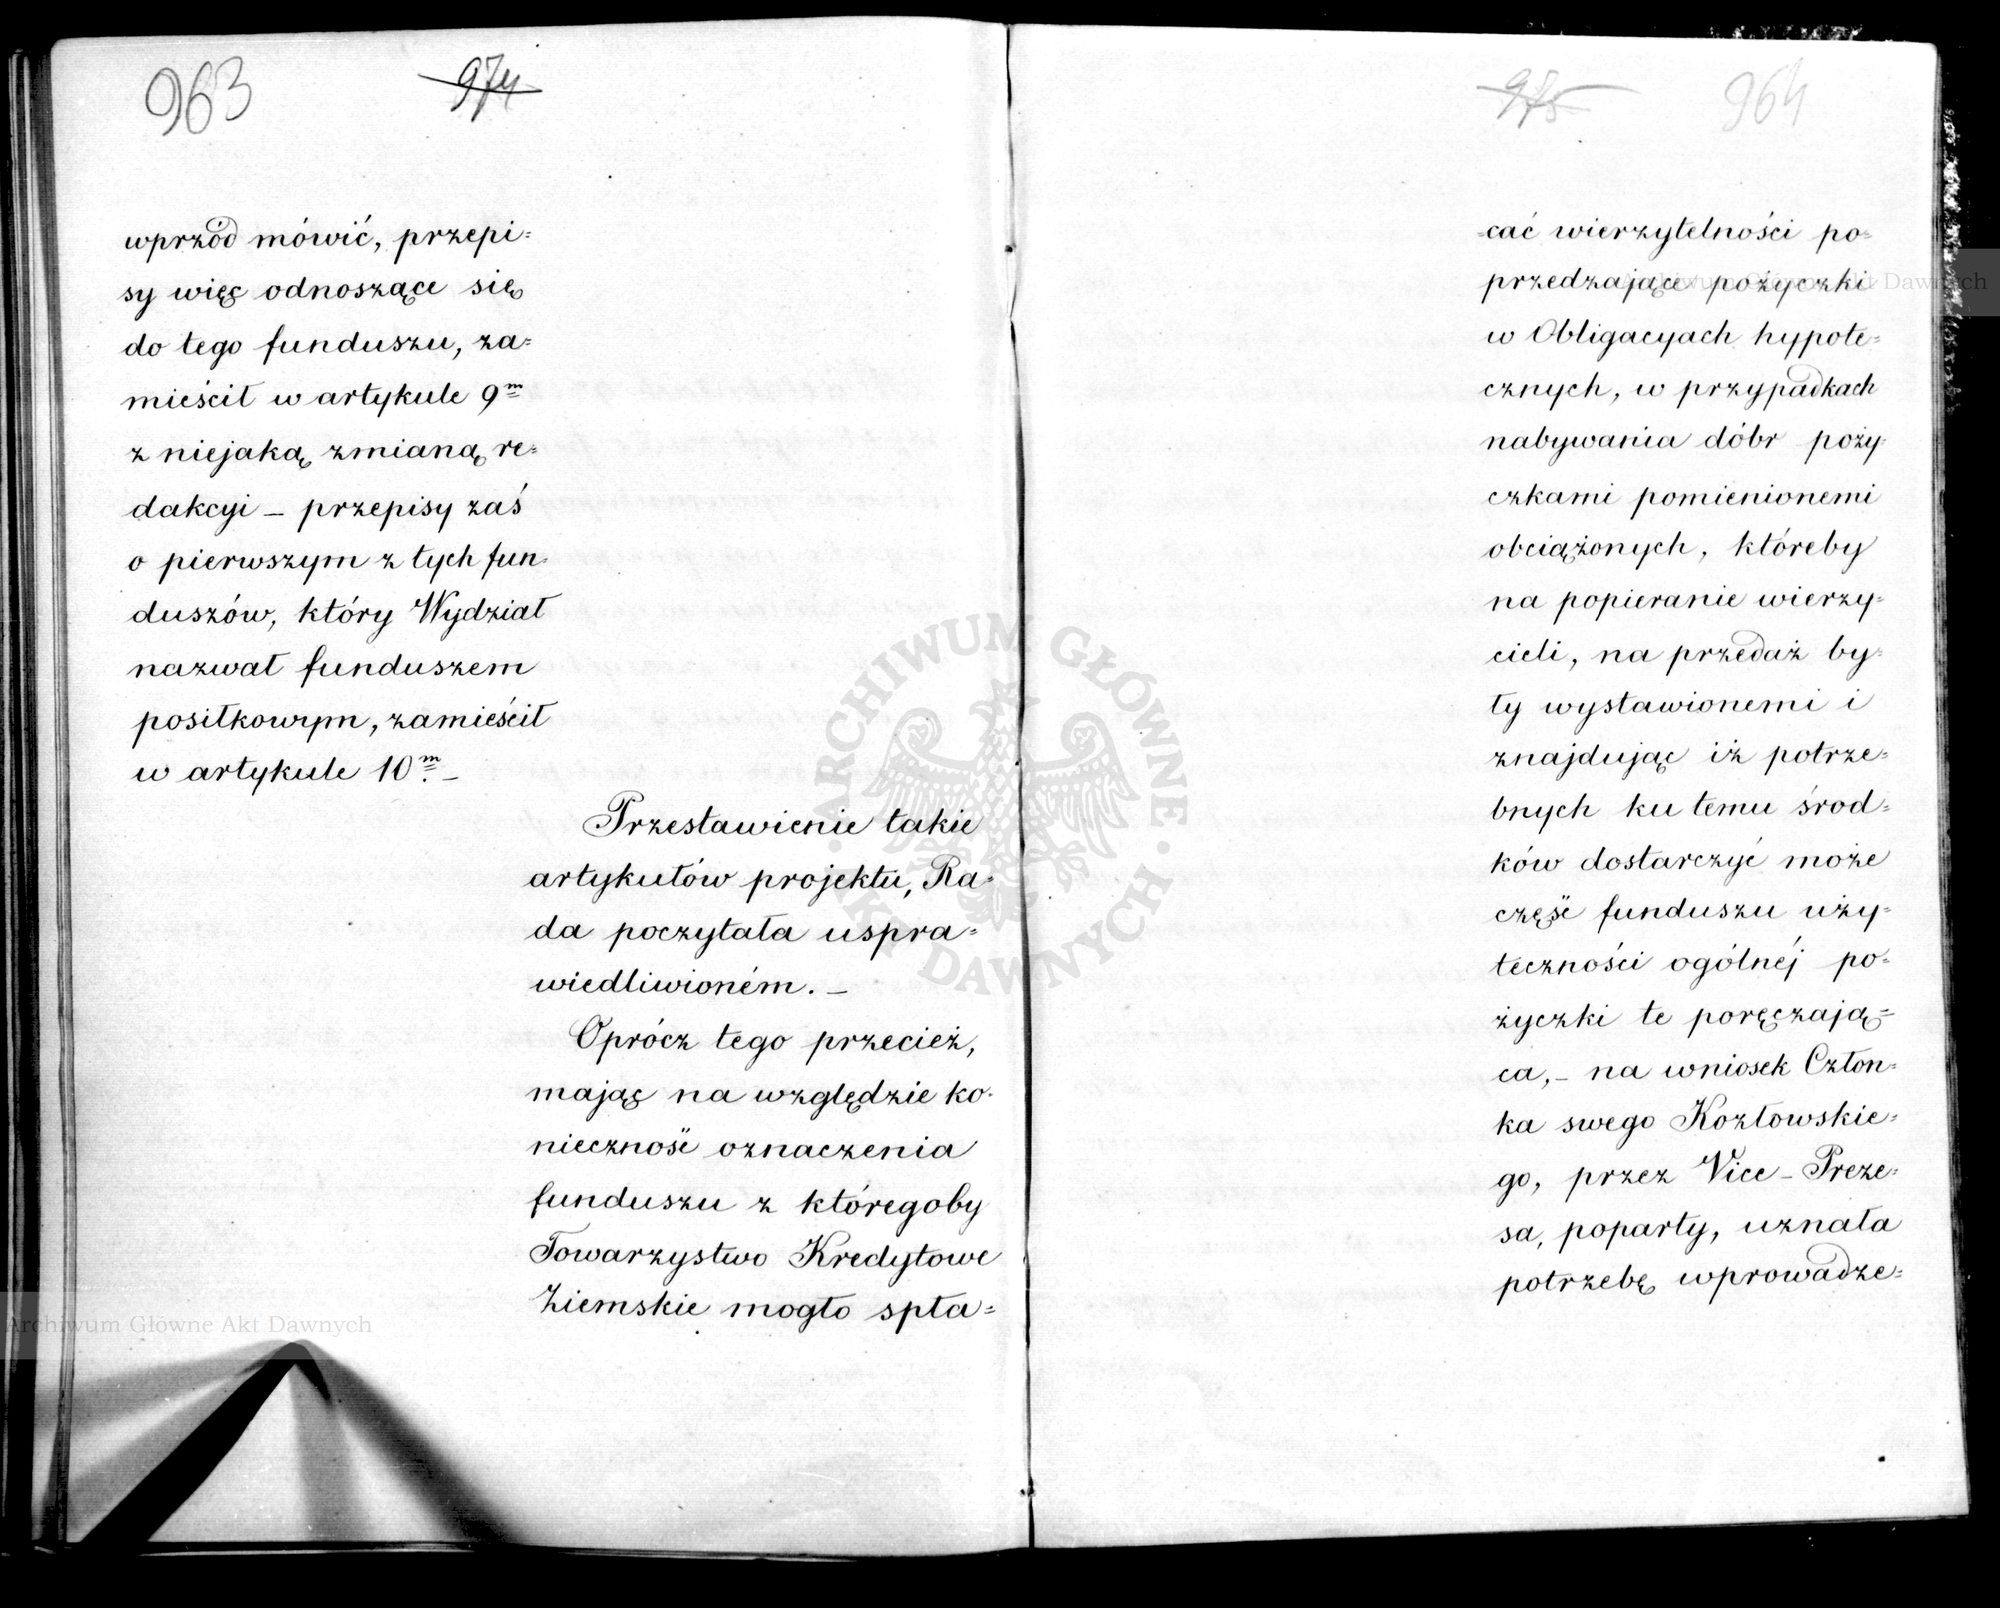 963
974
wprzód mówić, przepi=
sy więc odnoszące się
do tego funduszu, za=
mieścił w artykule 9m
z niejaką zmianą re=
dakcyi – przepisy zaś
o pierwszym z tych fun=
duszów, który Wydział
nazwał funduszem
posiłkowym, zamieścił
w artykule 10m. –
Przestawienie takie
artykułów projektu, Ra=
da poczytała uspra=
wiedliwioném. –
Oprócz tego przecież,
mając na względzie ko=
nieczność oznaczenia
funduszu z któregoby
Towarzystwo Kredytowe
Ziemskie mogło spła=
975
964
=cać wierzytelności po=
przedzające pożyczki
w Obligacyach hypote=
cznych, w przypadkach
nabywania dóbr poży=
czkami pomienionemi
obciążonych, któreby
na popieranie wierzy=
cieli, na przedaż by=
ły wystawionemi i
znajdując iż potrze=
bnych ku temu środ=
ków dostarczyć może
część funduszu uży=
teczności ogólnéj po=
życzki te poręczają=
ca, – na wniosek Człon=
ka swego Kozłowskie=
go, przez Vice – Preze=
sa, poparty, uznała
potrzebę wprowadze=
ARCHIWUM GŁÓWNE AKT DAWNYCH
Archiwum Główne Akt Dawnych
Archiwum Główne Akt Dawnych